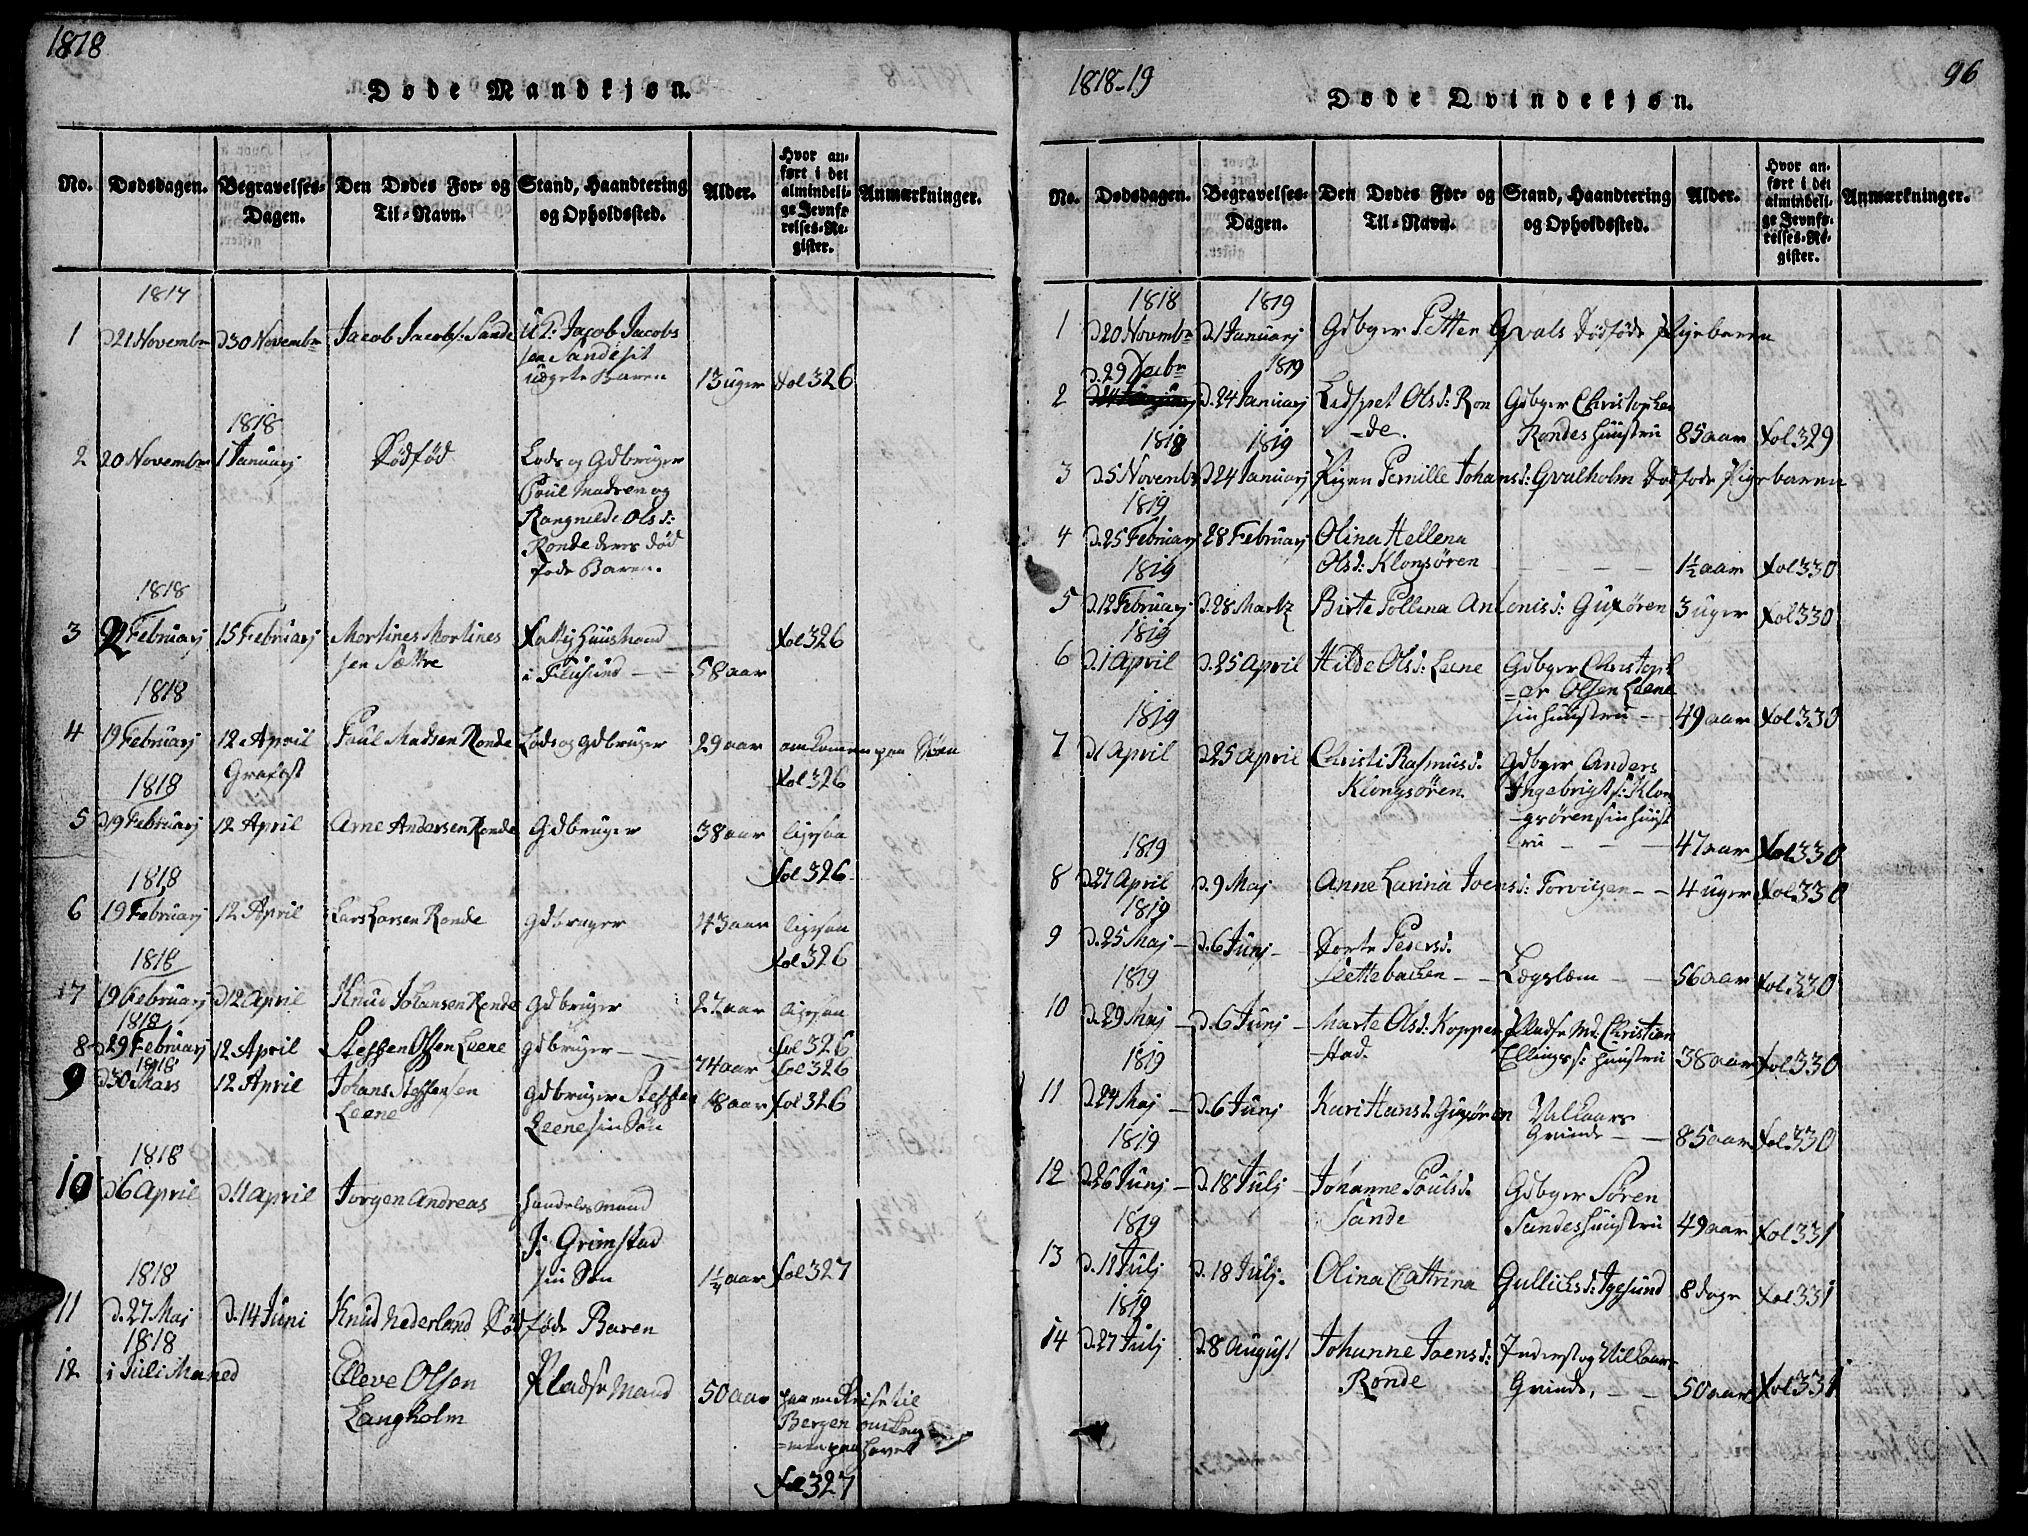 1818
Døde Mandkjøn.
No. Dødsdagen. Begravelses-Dagen. Den Dødes For- og Til-Navn. Stand, Haandtering og Opholdssted. Alder. Hvor anført i det almindelige Jevnførelses-Register. Anmærkninger.
1817
1 d 21 Novembr d 30 Novembr Jacob Jacobs: Sande
Jacob Jacobs
sen Sande sit
ægte Baren 13 uger Fol 326
1818
2 20 Novembr 1 Januarj Dødfød Lods og Gdbruger
Poul Madsen og
Rangnilde Olsd:
Ronde deres død
føde Baren.
1818
3 2 Februarj 15 Februarj Mortines Mortines Fattig Huusmand Fol 326
sen Sættre i 58 aar
1818
4 19 Februarj 12 April Paul Madsen Ronde Lods og Gdbruger 29 aar omkommen paa Søen
Grafæst Fol 326
1818
5 d 19 Februarj 12 April Arne Andersen Ronde Gdbruger 38 aar ligesaa
Fol 326
1818
6 19 Februarj 12 April Lars Larsen Ronde Gdbruger 43 aar ligesaa
Fol 326
1818
7 19 Februarj d 12 April Knud Johansen Ronde Gdbruger 27 aar ligesaa
1818 Fol 326
8 29 Februarj 12 April Steffen Olsen Leene Gdbruger 74 aar Fol 326
1818
9 d 30 Mars 12 April Johans Steffensen Gdbruger Steffen 18 aar Fol 326
Leene Leene sin Søn
1818
10 d 6 April d 11 April Jørgen Andreas Handelsmand
J: Grimstad
sin Søn 1¼ aar Fol 327
1818
11 d. 27 Maj d. 14 Juni Knud Nederland Dødføde Baren
1818
12 i Juli Maaned Elleve Olsen Pladse Mand 50 aar paa en Reise til
Langholm Bergen
paa Havet
Fol 327
1818-19 96
Døde Qvindekjøn.
No. Dødsdagen. Begravelses-Dagen. Den Dødes For- og Til-Navn. Stand, Haandtering og Opholdssted. Alder. Hvor anført i det almindelige Jevnførelses-Register. Anmærkninger.
1818 1819
1 d 20 Novembr d 1 Januarj Gdbger Petter Qvals Dødføde Pigebaren
d. 29 Decbr 1819
2 d. 24 Januarj Lidspet Olsd: Ron Gdbger Christopher
de. Rondes Huustru 85 aar Fol 329
1818 1819
3 d. 5 Novembr d 24 Januarj Pigen Pernille Johansd: Qvalholm Dødføde Pigebaren
1819
4 d. 25 Februarj 28 Februarj Olina Hellena
Olsd: Klongsøren 1½ aar Fol 330
1819
5 d. 12 Februarj d. 28 Martz Birte Pollena Antonisd: Guxøren 3 uger Fol 330
1819
6 d. 1 April d. 25 April Hilde Olsd: Leene Gdbger Christoph
er Olsen Leene
sin Huustru 49 aar Fol 330
1819
7 d 1 April d 25 April Christi Rasmusd. Gdbger Anders
Klongsøren Ingebrigts: Klon
gsøren sin Huust
tru 47 aar Fol 330
1819
8 d 27 April d. 9 Maj Anne Larina Joensd: Torvigen 4 uger Fol 330
1819
9 d. 25 Maj d. 6 Junj Dorte Pedersd.
Slettebacken Lægslem 56 aar Fol 330
1819
10 d. 29 Maj d. 6 Junj Marte Olsd: Kopper Pladse Md: Christian
stad Ellings: Huustru 38 aar Fol 330
1819
11 d 24 Maj d. 6 Junj Kari Hansd. Guxøren Vilkaars
Qvinde 85 aar Fol 330
1819
12 d 26 Junj d. 18 Julj Johanne Poulsd. Gdbger Søren
Sande Sandes Huustru 49 aar Fol 331
1819
13 d. 11 Julj d. 18 Julj. Olina Cattrina Gullichsd: Igesund 8 dage Fol 331
1819
14 d. 27 Julj d. 8 August Johanne Joensd: Inderst og Vilkaars
Ronde Qvinde, 50 aar Fol 331